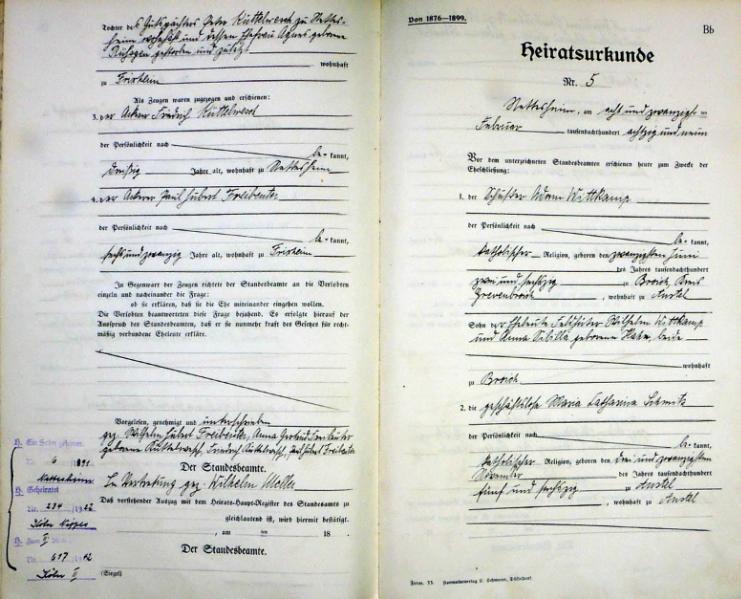 Tochter des Gutspächters Peter Küttelwesch zu Nettes-
heim wohnhaft und dessen Ehefrau Agnes geborene
gestorben und zuletzt
wohnhaft
zu Frixheim
Als Zeugen waren zugezogen und erschienen:
3. der Ackerer Friedrich Küttelwesch
der Persönlichkeit nach
be- kannt,
dreißig Jahre alt, wohnhaft zu Nettesheim
4. der Ackerer Paul Hubert Freibeuter
der Persönlichkeit nach
be- kannt,
sechs und zwanzig Jahre alt, wohnhaft zu Frixheim
In Gegenwart der Zeugen richtete der Standesbeamte an die Verlobten
einzeln und nacheinander die Frage:
ob sie erklären, daß sie die Ehe miteinander eingehen wollen.
Die Verlobten beantworteten diese Frage bejahend. Es erfolgte hierauf der
Ausspruch des Standesbeamten, daß er sie nunmehr kraft des Gesetzes für recht-
mäßig verbundene Eheleute erkläre.
Vorgelesen, genehmigt und unterschrieben
gez. Wilhelm Hubert Freibeuter, Anna Gertrud Freibeuter
geborene Küttelwesch, Friedrich Küttelwesch, Paul Hubert Freibeuter
Der Standesbeamte.
In Vertretung gez. Wilhelm Moller
Daß vorstehender Auszug mit dem Heirats-Haupt-Register des Standesamts zu
gleichlautend ist, wird hiermit bestätigt.
, am ten 18
Der Standesbeamte.
(Siegel)
Ein Sohn geboren
Nr. 6 1891
Nettesheim
Geheiratet
Nr. 294 /19
Köln Nippes
Nr. 617
Köln
Von 1876—1899.
Bb
Heiratsurkunde
Nr. 5
Nettesheim, am acht und zwanzigsten
Februar tausendachthundert achtzig und neun
Vor dem unterzeichneten Standesbeamten erschienen heute zum Zwecke der
Eheschließung:
1. der Schuster Adam Wittkamp
der Persönlichkeit nach
be- kannt,
katholischer Religion, geboren den zwanzigsten Juni
des Jahres tausendachthundert
zwei und sechzig zu Broich, Kreis
Grevenbroich, wohnhaft zu Anstel
Sohn der Eheleute Feldhüter Wilhelm Wittkamp
und Anna Sibilla geborene Hahn, beide
wohnhaft
zu Broich
2. die geschäftslose Maria Catharina Schmitz
der Persönlichkeit nach
be- kannt,
katholischer Religion, geboren den drei und zwanzigsten
November des Jahres tausendachthundert
fünf und sechzig zu Anstel
, wohnhaft zu Anstel